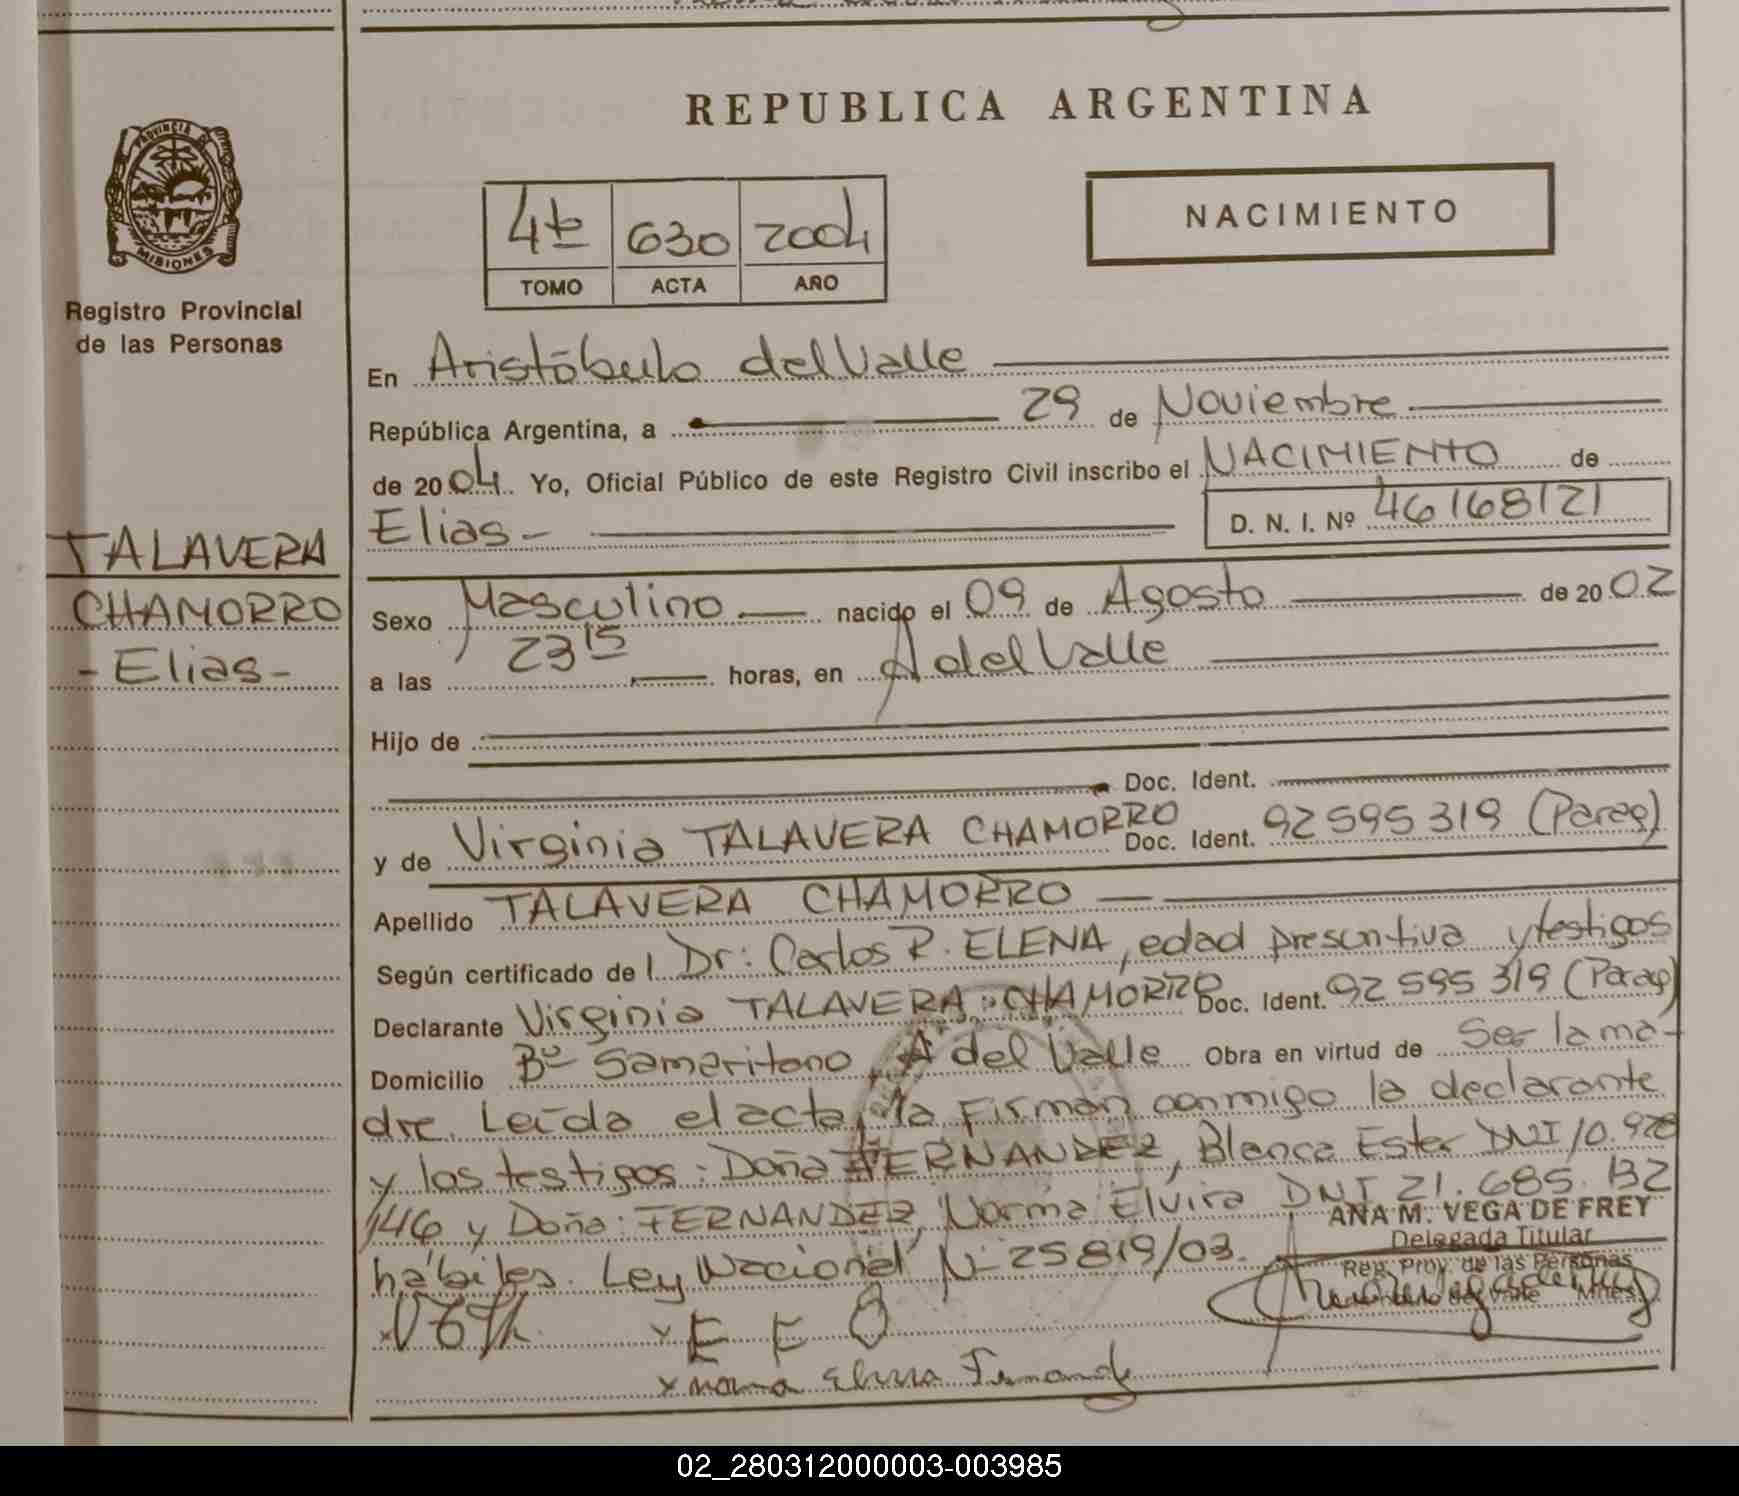 REPUBLICA ARGENTINA
PROVINCIA DE
MISIONES
Registro Provincial
de las Personas
4to 630 2004
TOMO ACTA AÑO
NACIMIENTO
En Aristóbulo del Valle
República Argentina, a 29 de Noviembre
de 2004. Yo, Oficial Público de este Registro Civil inscribo el NACIMIENTO de
Elias-
D. N. I. Nº 46168121
TALAVERA
CHAMORRO
- Elias -
Sexo Masculino nacido el 09 de Agosto de 2002
a las 23 15 horas, en A del Valle
Hijo de
Doc. Ident.
y de Virginia TALAVERA CHAMORRO Doc. Ident. 92 595 319 (Parag)
Apellido TALAVERA CHAMORRO
Según certificado de l Dr: Carlos R. ELENA, edad presuntiva y testigos
Declarante Virginia TALAVERA CHAMORRO Doc. Ident. 92 595 319 (Parag)
Domicilio Bº Samaritano, A del Valle Obra en virtud de Ser la ma-
dre. Leída el acta, la Firman conmigo la declarante
y los testigos: Doña FERNANDEZ, Blanca Ester DNI 10.928
146 y Doña: FERNANDEZ, Norma Elvira DNI 21.685.132
hábiles. Ley Nacional Nº 25819/03.
ANA M. VEGA DE FREY
Delegada Titular
Reg. Prov. de las Personas
x E F
x norma Elvira Fernandz
02_280312000003-003985